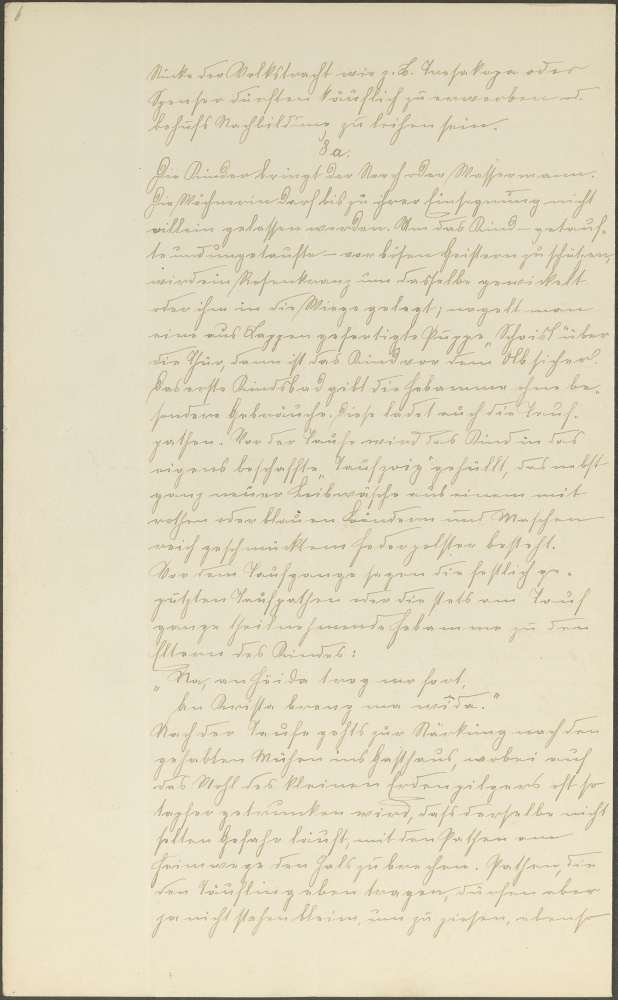 6
Stücke der Volkstracht wie z. B. Tresakoga oder
Spenser dürften käuflich zu erwerben od.
behufs Nachbildung zu leihen sein.
8a.
Die Kinder bringt der Storch oder Wassermann.
Die Wöchnerin darf bis zu ihrer Einsegnung nicht
allein gelassen werden. Um das Kind – getauf-
te und ungetaufte – vor bösen Geistern zu schützen,
wird ein Rosenkranz um dasselbe gewickelt
oder ihm in die Wiege gelegt; nagelt man
eine aus Lappen gefertigte Puppe "Schrißl" über
die Thür, dann ist das Kind vor dem "Olb" sicher.
Das erste Kindsbad gibt die Hebamme ohne be-
sondere Gebräuche. Diese ladet auch die Tauf-
pathen. Vor der Taufe wird das Kind in das
eigens beschaffte "Taufzeig" gehüllt, das nebst
ganz neuer Leibwäsche aus einem mit
rothen oder blauen Bändern und Maschen
reich geschmücktem Federpolster besteht.
Vor dem Taufgange sagen die festlich ge-
putzten Taufpathen oder die stets am Tauf
gange theilnehmende Hebamme zu den
Eltern des Kindes:
"Na, an Häida trog mr fort,
An Krista breng ma wida."
Nach der Taufe gehts zur Stärkung nach den
gehabten Mühen ins Gasthaus, wobei auf
das Wohl des kleinen Erdenpilgers oft so
tapfer getrunken wird, dass derselbe nicht
selten Gefahr läuft, mit den Pathen am
Heimwege den Hals zu brechen. Pathen, die
den Täufling eben tragen, dürfen aber
ja nicht stehen bleiben, um zu ziehen, ebenso